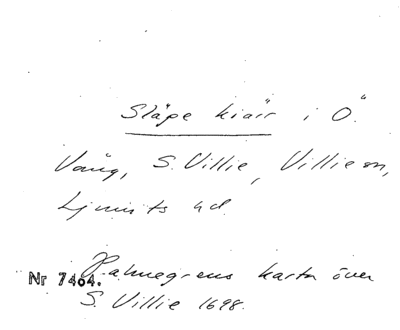 Släpe kiäır i Ö.
Vång, S. Villie, Villie sn,
Ljunits hd.
Palmegrens karta över
Nr 7464.
S. Villie 1698.